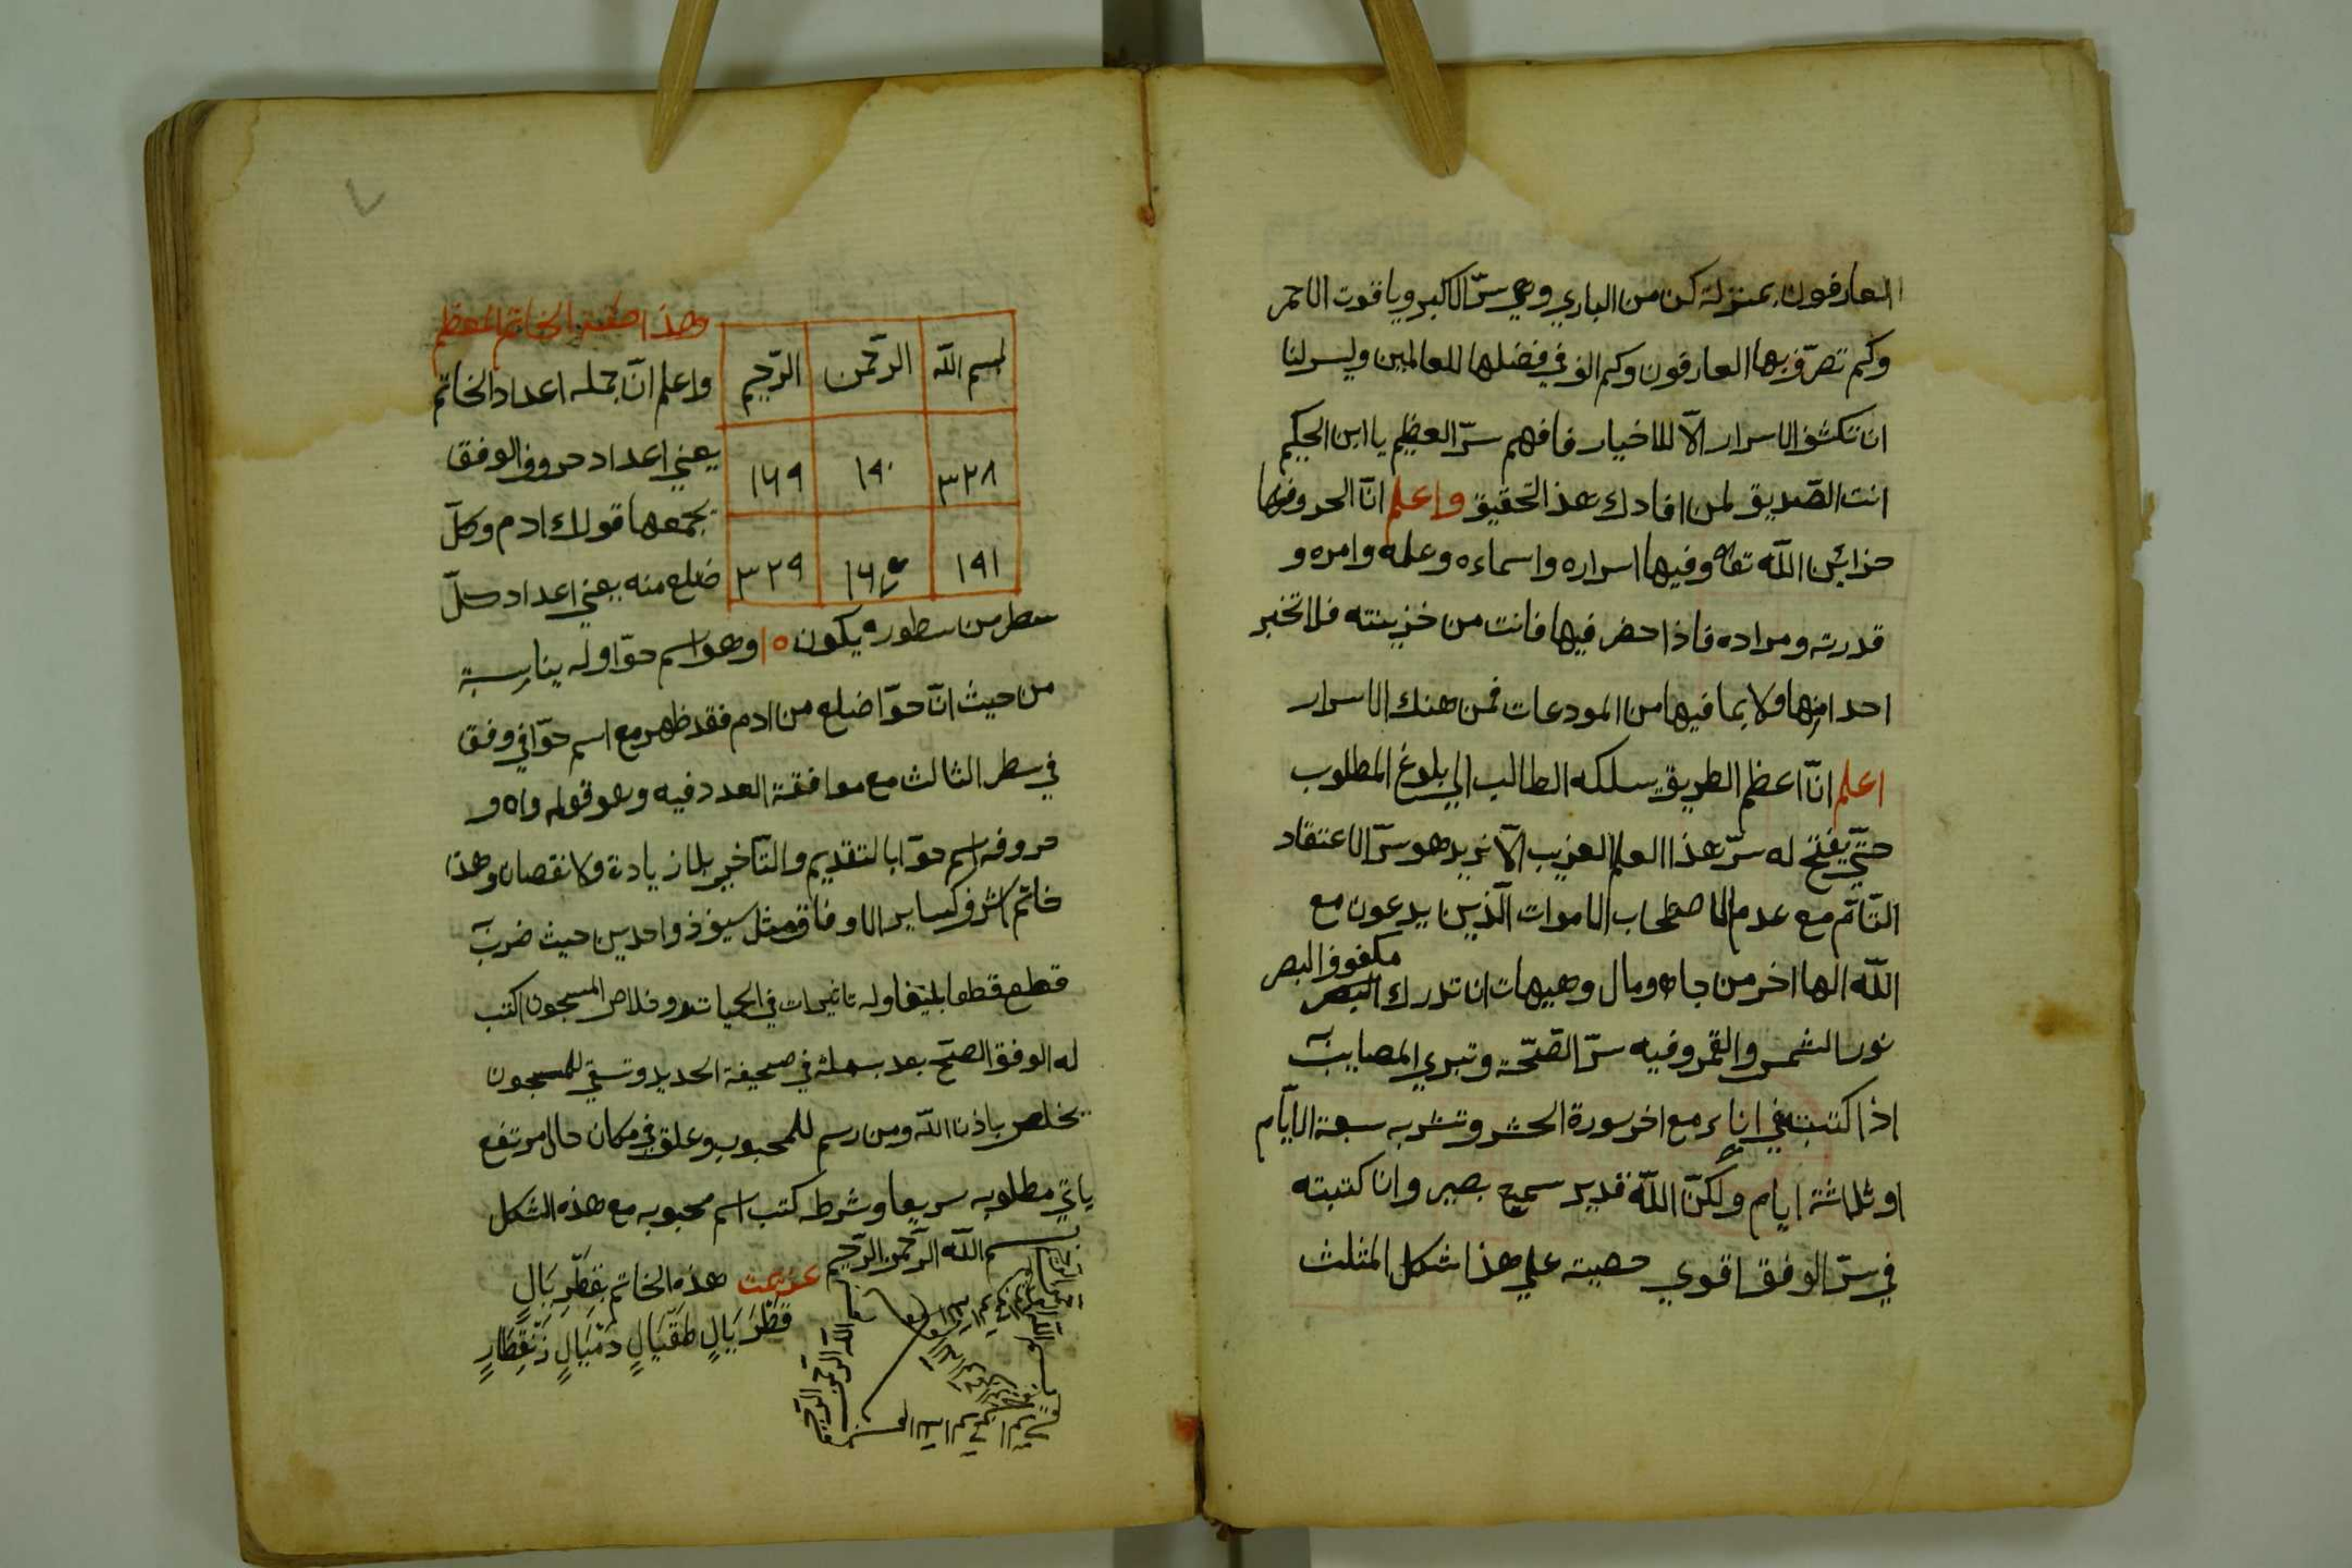 العارفون بمنزلة كن من الباري وهي سرّ الاكبر وياقوت الاحمر
وكم تصرّف بها العارفون وكم الوف في فضلها للعالمين وليس لنا
ان نكشف الاسرار الّا للاخيار فافهم سرّ العظيم يا ابن الحكيم
انت الصّديق لمن افادك هذ التحقيق واعلم انّ الحروف
خزائن اللّه تعا وفيها اسراره واسماءه وعلمه وامره و
قدرته ومراده فاذا حضر فيها فانت من خزينته فلا تخبر
احدا منها ولا بما فيها من المودعات فمن هنك الاسرار
اعلم انّ اعظم الطريق سلكه الطالب الي بلوغ المطلوب
حتّي يفتح له سرّ هذا العلم الغريب الّا نريد هو سرّ الاعتقاد
التّامّ مع عدم الاصطحاب الاموات الّذين يدعون مع
اللّه الها اخر من جاه ومال وهيهات ان تدرك مكفوف البصر
نور الشمس والقمر وفيه سرّ الصّحّة وتبري المصايب
اذا كتبته في اناء مع اخر سورة الحشر وتشربه سبعة الايّام
او ثلاثة ايام ولكنّ اللّه قدير سميع بصير وان كتبته
في سرّ الوفق اقوي حصيته علي هذا شكل المثلث
وهذا صفة الخاتم المعظم
بسم اللّه الرّحمن الرّحيم
٣٢٨ ١٩٠ ١٦٩
١٩١ ٣٢٩
واعلم انّ جمله اعداد الخاتم
يعني اعداد حروف الوفق
يجمعها قولك ادم وكلّ
ضلع منه يعني اعداد كلّ
سطر من سطوره يكون ١٥ وهو اسم حوّا وله يناسبة
من حيث انّ حوّا ضلع من ادم فقد ظهر مع اسم حوّا في وفق
في سطر الثالث مع موافقة العدد فيه وهو قوله واه و
حروفه اسم حوّا بالتقديم والتّاخير بلا زيادة ولا نقصان وهذا
خاتم اشرف كساير الاوفاق مثل سيوف واحد من حيث ضرب
قطع قطعا بليغا وله تاثيرات في الحيات وخلاص المسجون اكتب
له الوفق الصحّ بعد بسملة في صحيفة الحديد وتسقي للمسجون
يخلص باذن اللّه ومن رسم للمحبوب وعلق في مكان خال مرتفع
ياتي مطلوبه سريعا وشرطه كتب اسم محبوبه مع هذه الشكل
بسم اللّه الرّحمن الرّحيم
عزيمت هذه الخاتم بقطّر بَالٍ
قَطْرَيَالٍ طَقْيَالٍ دَمْيَالٍ
اللّه الرّحمن الرّحيم